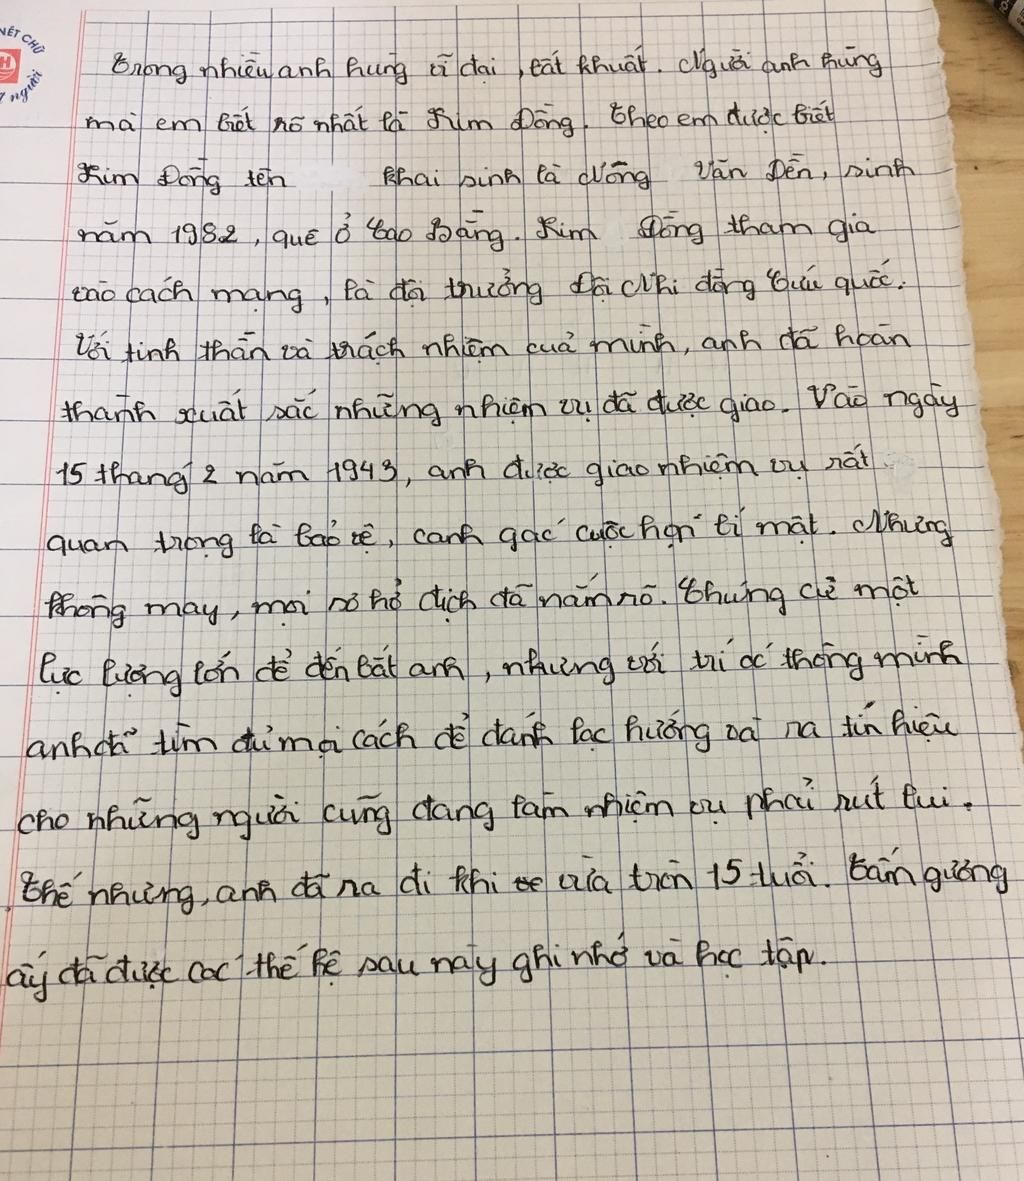 NÉT CHỮ
H
người
Trong nhiều anh hùng vĩ đại, bất khuất. Người anh hùng
mà em biết rõ nhất là Kim Đồng. Theo em được biết
Kim Đồng tên khai sinh là Nông Văn Dền, sinh
năm 1982, quê ở Cao Bằng. Kim Đồng tham gia
vào cách mạng, là đội trưởng Đội Nhi đồng Cứu quốc.
Với tinh thần và trách nhiệm của mình, anh đã hoàn
thành xuất sắc những nhiệm vụ đã được giao. Vào ngày
15 tháng 2 năm 1943, anh được giao nhiệm vụ rất
quan trọng là bảo vệ, canh gác cuộc họp bí mật. Nhưng
không may, mọi sơ hở địch đã nắm rõ. Chúng cử một
lực lượng lớn để đến bắt anh, nhưng với trí óc thông minh
anh đã tìm đủ mọi cách để đánh lạc hướng và ra tín hiệu
cho những người cũng đang làm nhiệm vụ phải rút lui.
Thế nhưng, anh đã ra đi khi vừa tròn 15 tuổi. Tấm gương
ấy đã được các thế hệ sau này ghi nhớ và học tập.